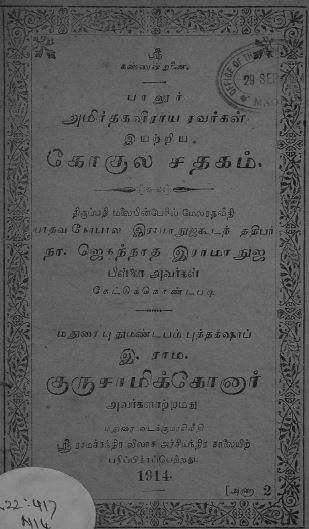 ஸ்ரீ
கண்ணன்றுணை.
பாலூர்
அமிர்தகவிராய ரவர்கள்
இயற்றிய
கோகுல சதகம்.
திருப்பதி மலையின்பேரில் மேலரதவீதி
யாதவகோபால இராமாநுஜகூடத் ததிபர்
நா. ஜெகந்நாத இராமாநுஜ
பிள்ளை அவர்கள்
கேட்டுக்கொண்டபடி
மதுரை புதுமண்டபம் புத்தகஷாப்
இ. ராம.
குருசாமிக்கோனார்
அவர்களாற்றமது
மதுரை வடக்குமாசிவீதி
ஸ்ரீ ராமச்சந்திர விலாச அச்சியந்திர சாலையிற்
பதிப்பிக்கப்பெற்றது.
1914
[அணா 2
29 SEP